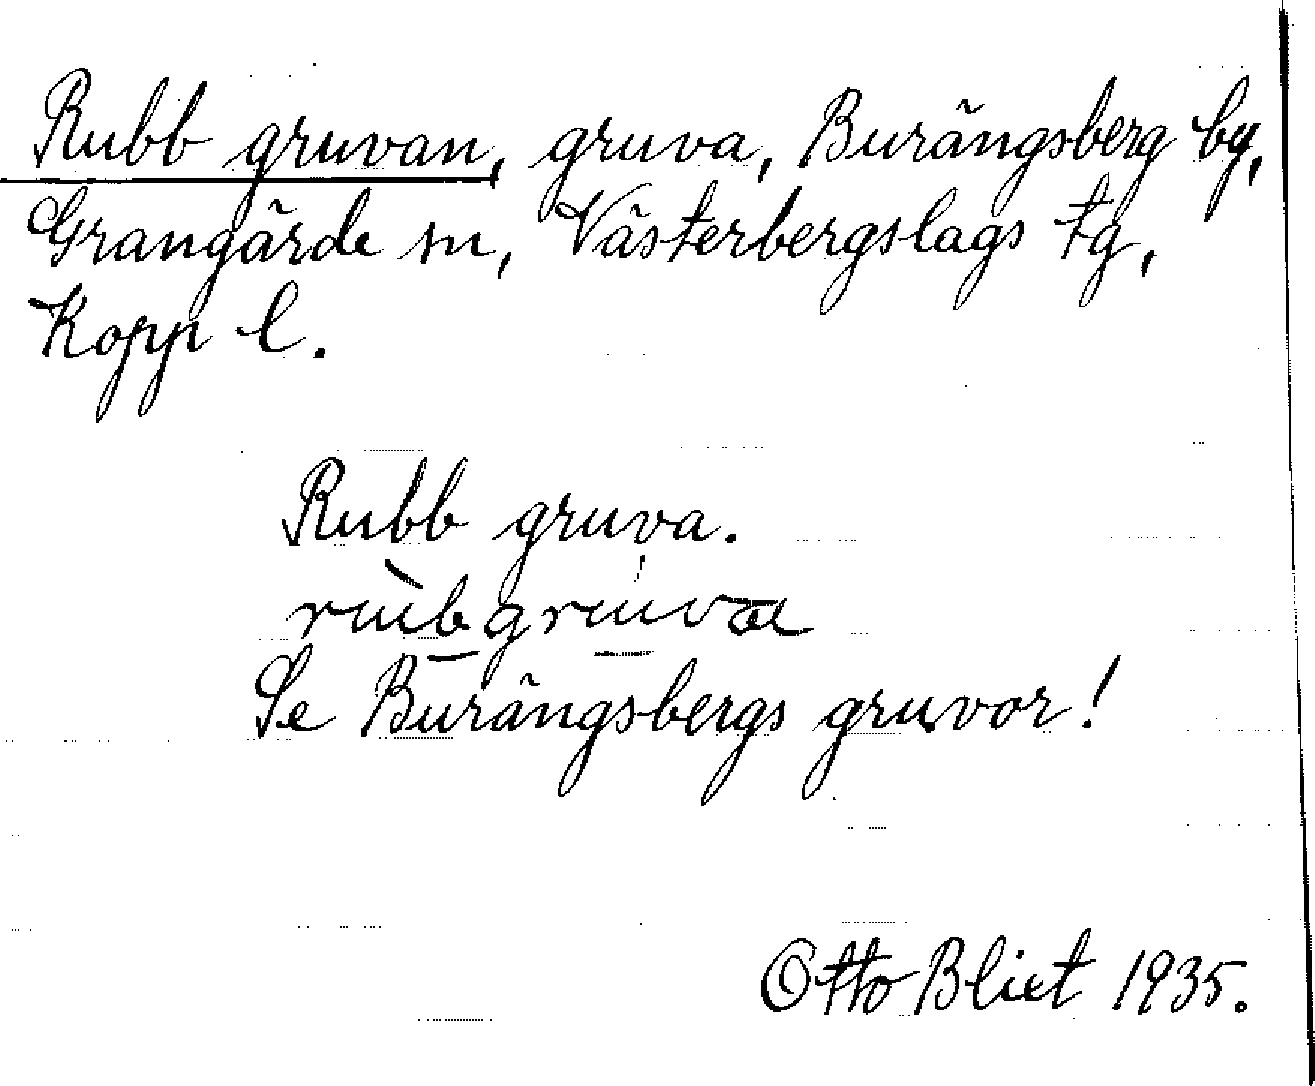 Rubb gruvan, gruva, Burängsberg by,
Grangärde sn, Västerbergslags tg,
Kopp l.
Rubb gruva.
Se Burängsbergs gruvor!
Otto Bliet 1935.